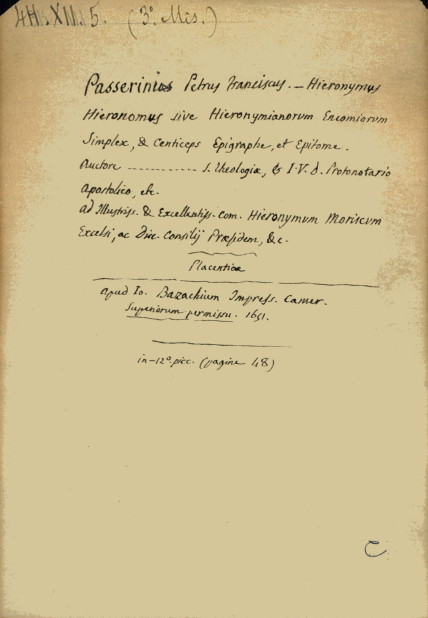 4H. XII. 5. (3º. Mis.)
Passerinius Petrus Franciscus. — Hieronymus
Hieronomus sive Hieronymianorum Encomiorum
Simplex, & Centiceps Epigraphe, et Epitome.
Auctore ----------- S. Theologiæ, & I. V. D. Protonotario
Apostolico, etc.
Ad Illustriss. & Excellentiss. Com. Hieronymum Moriscum
Excelsi, ac Din. Consilij Præsidem, &c.
Placentiæ
apud Io. Bazachium Impress. Camer.
Superiorum permissu. 1651.
in-12º picc. (pagine 48)
C